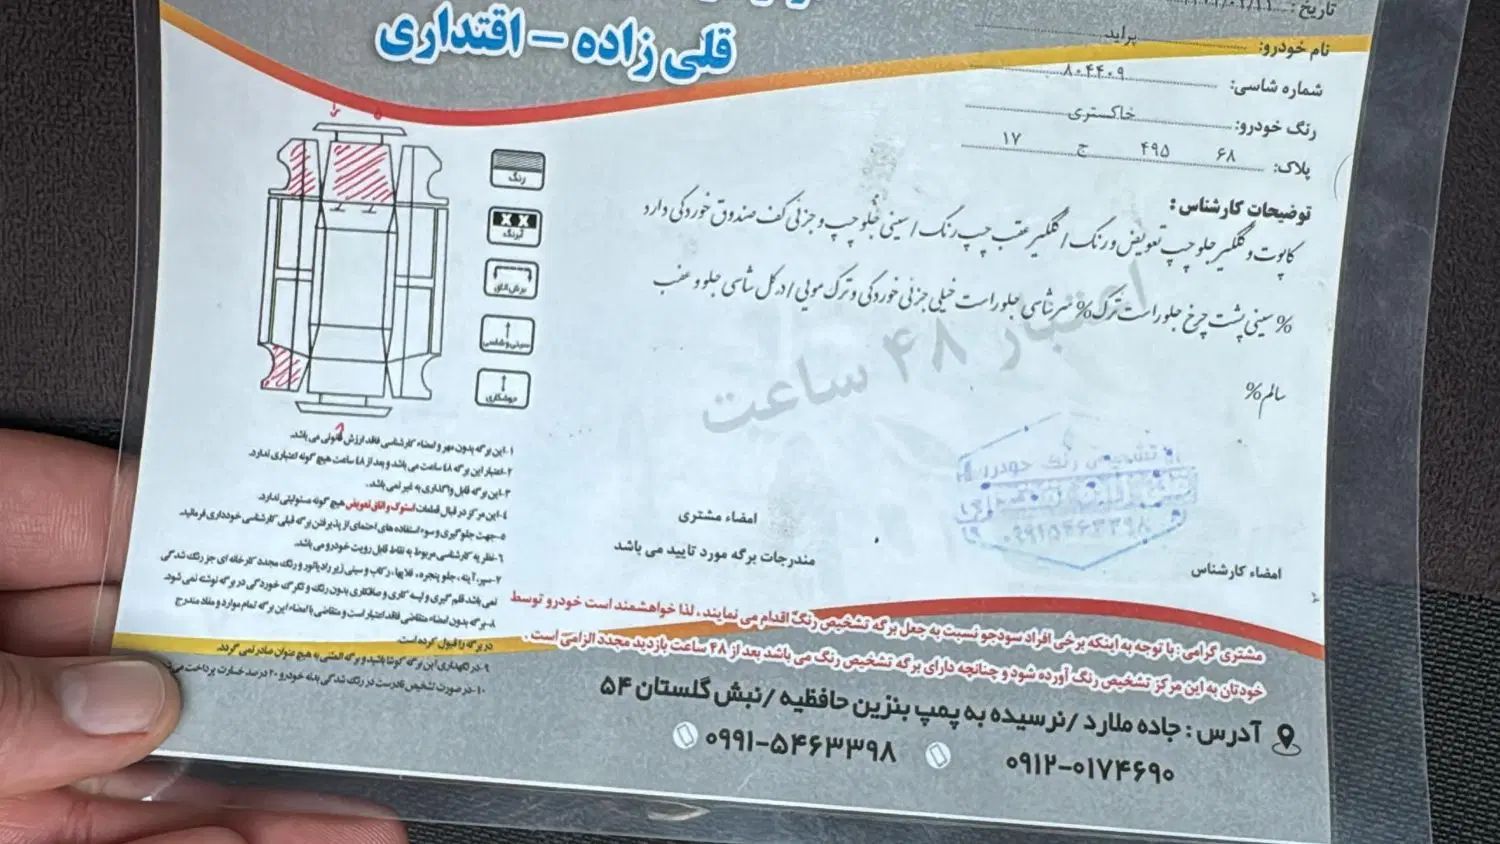 قلی زاده - اقتداری
تاریخ:
نام خودرو: پراید
شماره شاسی: ۸۰۴۴۰۹
رنگ خودرو: خاکستری
پلاک: ۶۸ ۴۹۵ ج ۱۷
توضیحات کارشناس:
کاپوت و گلگیر جلو چپ تعویض و رنگ / گلگیر عقب چپ رنگ / سینی جلو چپ و جزئی کف صندوق خوردگی دارد
% سینی پشت چرخ جلو راست ترک % سرشاسی جلو راست خیلی جزئی خوردگی و ترک مویی / در کل شاسی جلو و عقب
سالم %
اعتبار ۴۸ ساعت
رنگ
آبرنگ
برش اتاق
سینی و شاسی
جوشکاری
۱-این برگه بدون مهر و امضاء کارشناسی فاقد ارزش قانونی می باشد.
۲-اعتبار این برگه ۴۸ ساعت می باشد و بعد از ۴۸ ساعت هیچ گونه اعتباری ندارد.
۳-این برگه قابل واگذاری به غیر نمی باشد.
۴-این مرکز در قبال قطعات استوک و اتاق تعویض هیچ گونه مسئولیتی ندارد.
۵-جهت جلوگیری و سوء استفاده های احتمای از پذیرفتن برگه قبلی کارشناسی خودداری فرمائید.
۶-نظریه کارشناسی مربوط به نقاط قابل رویت خودرو می باشد.
۷-سپر، آینه، جلو پنجره، قلابها، رکاب و سینی زیر رادیاتور و رنگ مجدد کارخانه ای جز رنگ شدگی
نمی باشد قلم گیری و لیسه کاری و صافکاری بدون رنگ و تگرگ خوردگی در برگه نوشته نمی شود.
۸-برگه بدون امضاء متقاضی فاقد اعتبار است و متقاضی با امضاء این برگه تمام موارد و مفاد مندرج
در برگه را قبول کرده است.
۹-در نگهداری این برگه کوشا باشید و برگه المثنی به هیچ عنوان صادر نمی گردد.
۱۰-در صورت تشخیص نادرست در رنگ شدگی بدنه خودرو ۲۰ درصد خسارت پرداخت
امضاء مشتری
مندرجات برگه مورد تایید می باشد
تشخیص رنگ خودرو
۰۹۹۱۵۴۶۳۳۹۸
امضاء کارشناس
مشتری گرامی: با توجه به اینکه برخی افراد سودجو نسبت به جعل برگه تشخیص رنگ اقدام می نمایند، لذا خواهشمند است خودرو توسط
خودتان به این مرکز تشخیص رنگ آورده شود و چنانچه دارای برگه تشخیص رنگ می باشد بعد از ۴۸ ساعت بازدید مجدد الزامی است.
آدرس: جاده ملارد / نرسیده به پمپ بنزین حافظیه / نبش گلستان ۵۴
۰۹۱۲-۰۱۷۴۶۹۰ ۰۹۹۱-۵۴۶۳۳۹۸